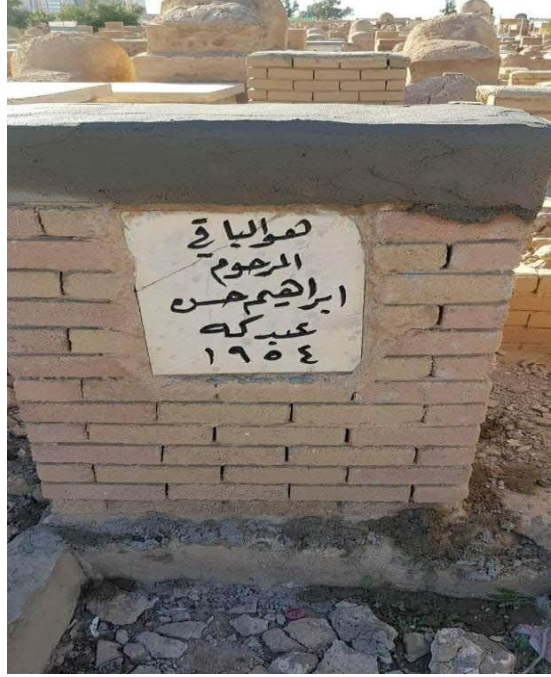 هو الباقي
المرحوم
ابراهيم حسن
عبدكه
١٩٥٤